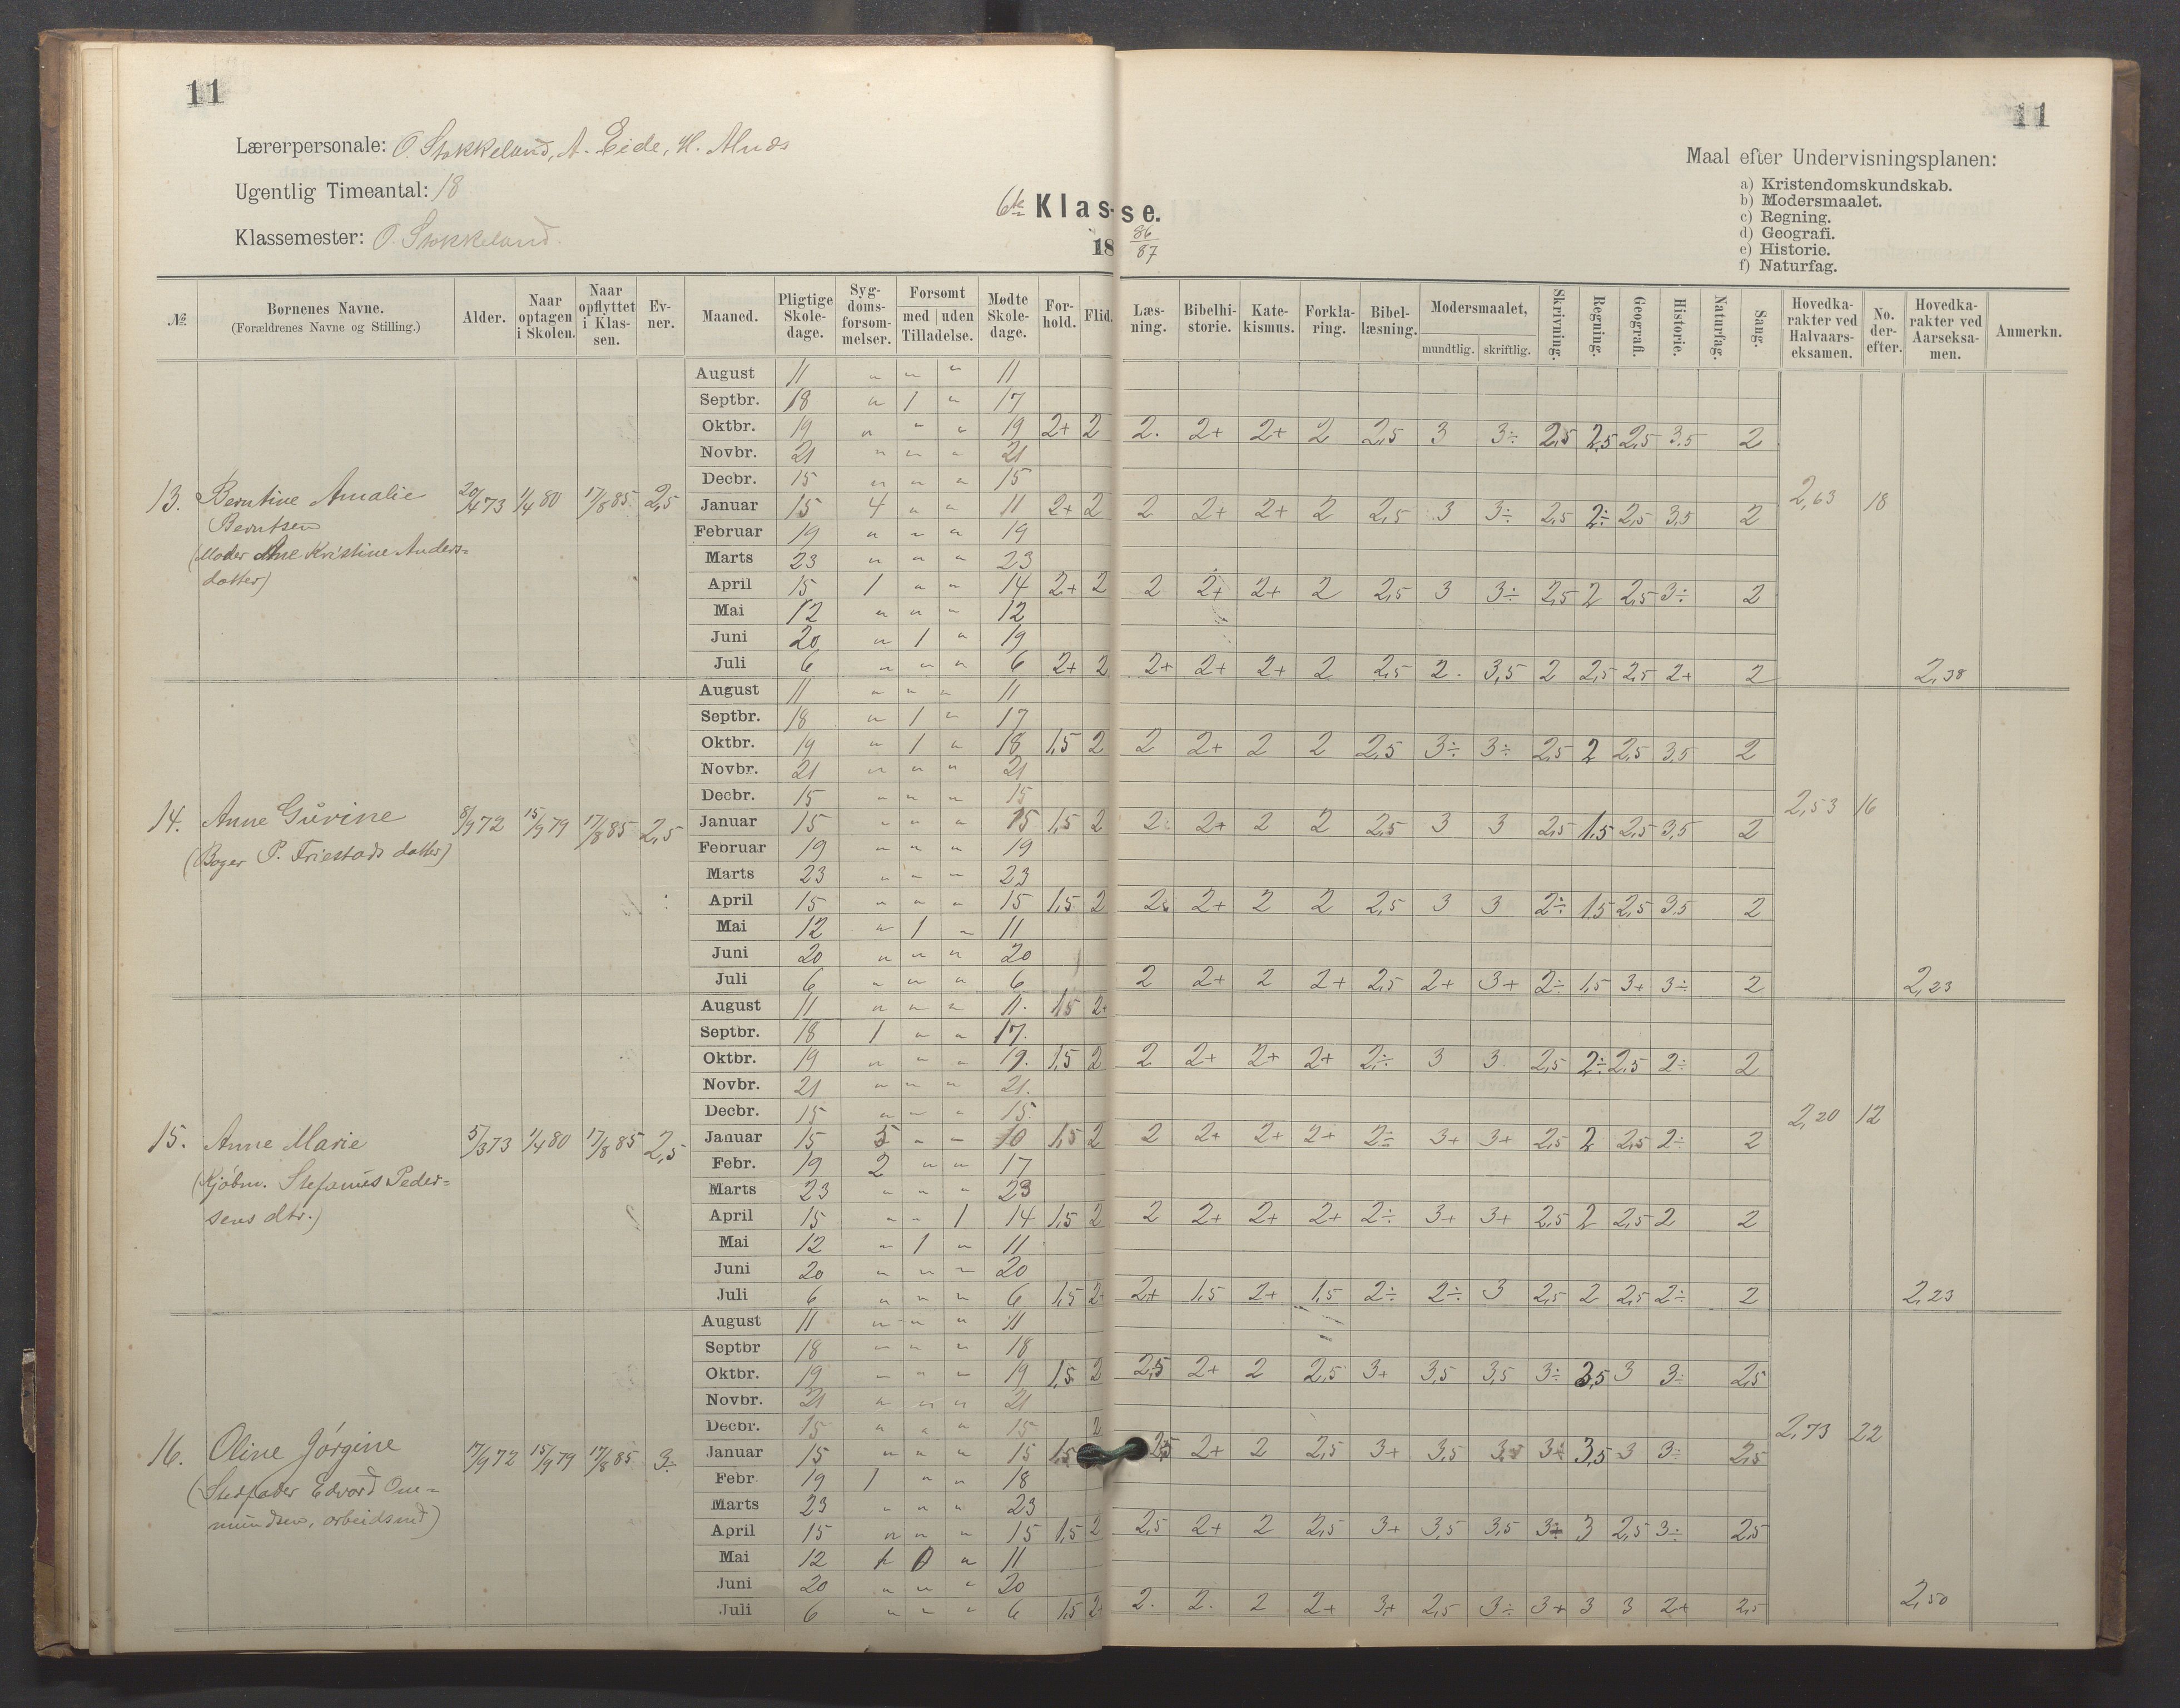 11
11
Lærerpersonale: O. Stokkeland, A. Eide, H. Alnæs
Ugentlig Timeantal: 18
Klassemester: O. Stokkeland.
6te Klasse.
18 86/87
Maal efter Undervisningsplanen:
a) Kristendomskundskab.
b) Modersmaalet.
c) Regning.
d) Geografi.
e) Historie.
f) Naturfag.
№ Børnenes Navne. (Forældrenes Navne og Stilling.) Alder. Naar optagen i Skolen. Naar opflyttet i Klassen. Evner. Maaned. Pligtige Skoledage. Sygdomsforsømmelser. Forsømt med uden Tilladelse. Mødte Skoledage. Forhold. Flid. Læsning. Bibelhistorie. Katekismus. Forklaring. Bibellæsning. Modersmaalet, mundtlig. skriftlig. Skrivning. Regning. Geografi. Historie. Naturfag. Sang. Hovedkarakter ved Halvaarseksamen. No. derefter. Hovedkarakter ved Aarseksamen. Anmerkn.
13. Berntine Amalie Berntsen
(Moder Ane Kristine Andersdatter)
20/4 73 1/4 80 17/8 85 2,5
August 11 " " " 11
Septbr. 18 " 1 " 17
Oktbr. 19 " " " 19 2+ 2 2. 2+ 2+ 2 2,5 3 3÷ 2,5 2,5 2,5 3,5 2
Novbr. 21 " " " 21
Decbr. 15 " " " 15
Januar 15 4 " " 11 2+ 2 2 2+ 2+ 2 2,5 3 3÷ 2,5 2÷ 2,5 3,5 2 2,63 18
Februar 19 " " " 19
Marts 23 " " " 23
April 15 1 " " 14 2+ 2 2 2+ 2+ 2 2,5 3 3÷ 2,5 2 2,5 3÷ 2
Mai 12 " " " 12
Juni 20 " 1 " 19
Juli 6 " " " 6 2+ 2 2+ 2+ 2+ 2 2,5 2. 3,5 2 2,5 2,5 2+ 2 2,38
14. Anne Gŭrine
(Bager P. Friestads datter)
8/9 72 15/9 79 17/8 85 2,5
August 11 " " " 11
Septbr. 18 " 1 " 17
Oktbr. 19 " 1 " 18 1,5 2 2 2+ 2 2 2,5 3÷ 3÷ 2,5 2 2,5 3,5 2
Novbr. 21 " " " 21
Decbr. 15 " " " 15
Januar 15 " " " 15 1,5 2 2 2+ 2 2 2,5 3 3 2,5 1,5 2,5 3,5 2 2,53 16
Februar 19 " " " 19
Marts 23 " " " 23
April 15 " " " 15 1,5 2 2 2+ 2 2 2,5 3 3 2÷ 1,5 2,5 3,5 2
Mai 12 " 1 " 11
Juni 20 " " " 20
Juli 6 " " " 6 2 2+ 2 2+ 2,5 2+ 3+ 2÷ 1,5 3+ 3÷ 2 2,23
15. Anne Marie
(Kjøbm. Stefanŭs Pedersens dtr.)
5/3 73 1/4 80 17/8 85 2,5
August 11 " " " 11. 1,5 2+
Septbr. 18 1 " " 17.
Oktbr. 19 " " " 19. 1,5 2 2 2+ 2+ 2+ 2÷ 3 3 2,5 2÷ 2,5 2÷ 2
Novbr. 21 " " " 21.
Decbr. 15 " " " 15.
Januar 15 5 " " 10 1,5 2 2 2+ 2+ 2+ 2÷ 3+ 3+ 2,5 2 2,5 2÷ 2 2,20 12
Febr. 19 2 " " 17
Marts 23 " " " 23
April 15 " " 1 14 1,5 2 2 2+ 2+ 2+ 2÷ 3+ 3+ 2,5 2 2,5 2 2
Mai 12 " 1 " 11
Juni 20 " " " 20
Juli 6 " " " 6 1,5 2+ 2+ 1,5 2+ 1,5 2÷ 2÷ 3 2,5 2 2,5 2÷ 2 2,23
16. Oline Jørgine
(Stedfader Edvard Ommŭndsen, arbeidsmd)
17/9 72 15/9 79 17/8 85 3÷
August 11 " " " 11
Septbr 18 " " " 18
Oktbr. 19 " " " 19 1,5 2 2,5 2+ 2 2,5 3+ 3,5 3,5 3÷ 3,5 3 3÷ 2,5
Novbr. 21 " " " 21
Decbr. 15 " " " 15 2
Januar 15 " " " 15 1,5 2,5 2+ 2 2,5 3+ 3,5 3,5 3÷ 3,5 3 3÷ 2,5 2,73 22
Febr 19 1 " " 18
Marts 23 " " " 23
April 15 " " " 15 1,5 2 2,5 2+ 2 2,5 3+ 3,5 3,5 3÷ 3 2,5 3÷ 2,5
Mai 12 " 11
Juni 20 " " " 20
Juli 6 " " " 6 1,5 2+ 2. 2. 2 2+ 3+ 2,5 3÷ 3+ 3 3 2+ 2,5 2,50